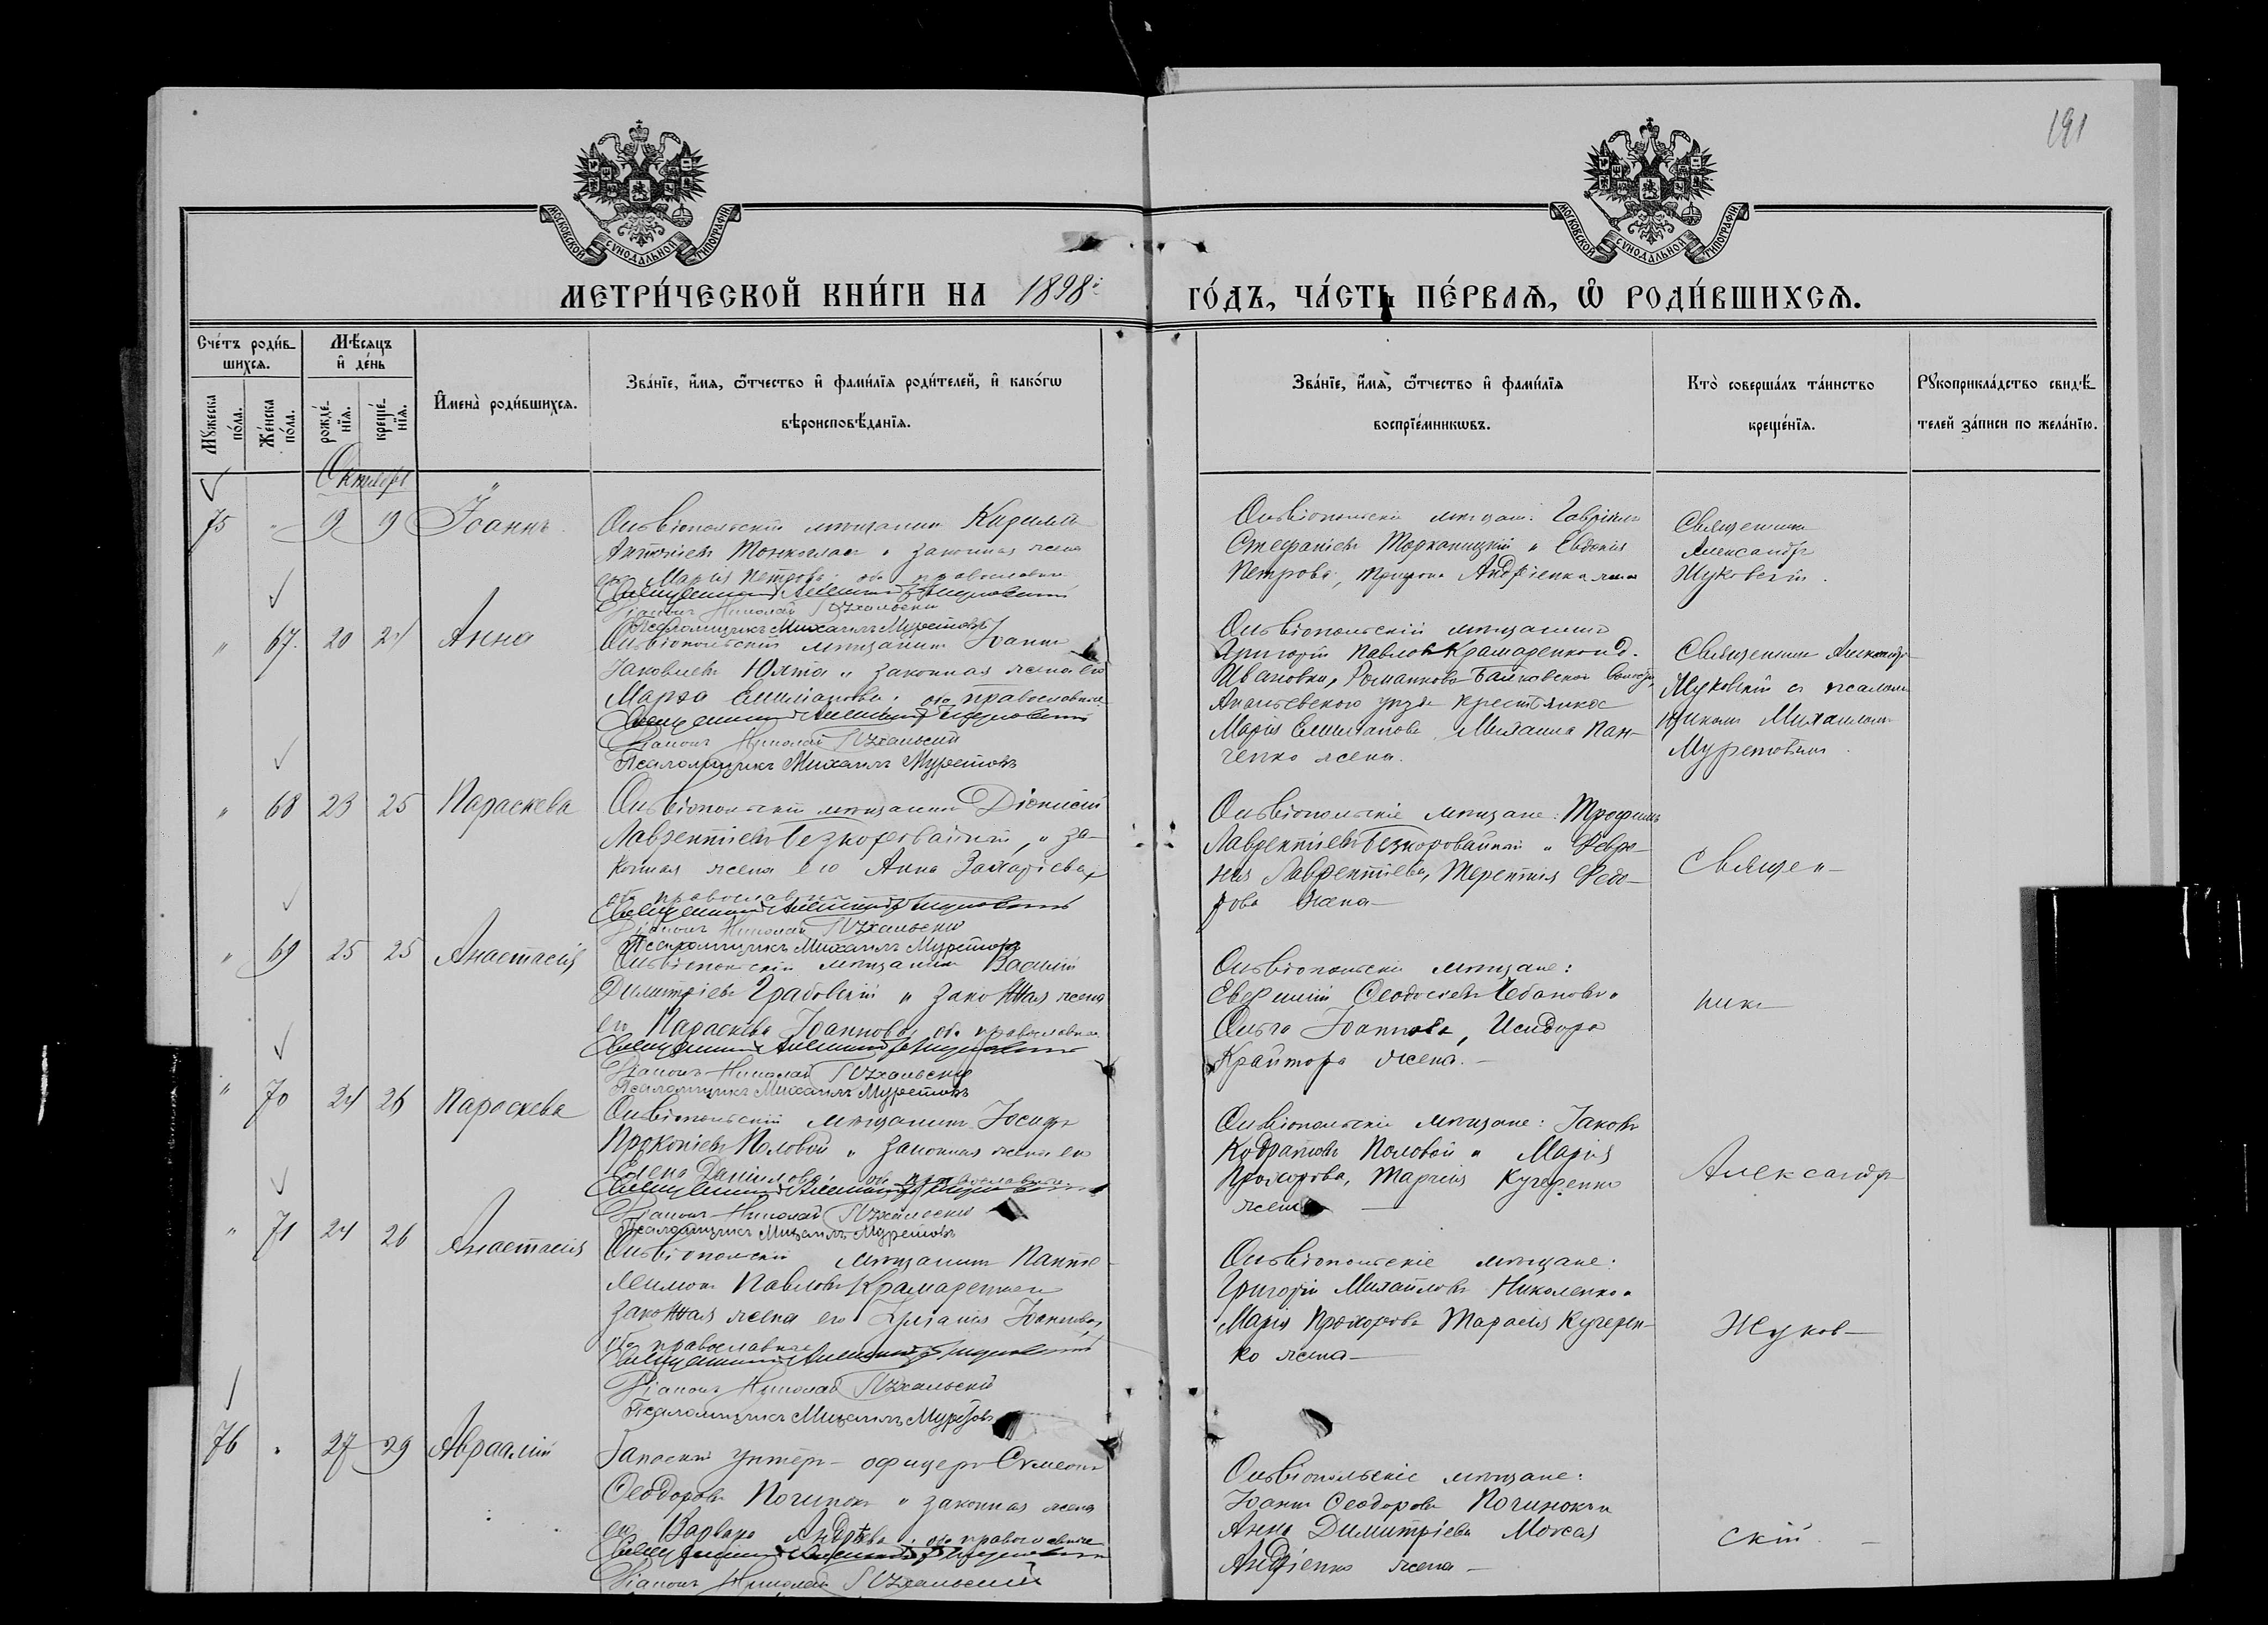 191
МОСКОВСКОЙ СѴНОДАЛЬНОЙ ТИПОГРАФІИ
МОСКОВСКОЙ СѴНОДАЛЬНОЙ ТИПОГРАФІИ
МЕТРИ́ЧЕСКОЙ КНИ́ГИ НА 1898 ГО́ДЪ, ЧА́СТЬ ПЕ́РВАѦ, Ѡ РОДИ́ВШИХСѦ.
Сче́тъ роди́в-
шихсѧ.
Мꙋжеска по́ла.
Же́нска по́ла.
Мѣ́сѧцъ
и҆ де́нь
рожде́-
нїѧ.
креще́-
нїѧ.
И҆мена̀ роди́вшихсѧ.
Зва́нїе, и҆́мѧ, ѻ҆́тчество и҆ фами́лїѧ роди́телей, и҆ како́гѡ
вѣроисповѣ́данїѧ.
Зва́нїе, и҆́мѧ, ѻ҆́тчество и҆ фами́лїѧ
воспрїе́мникѡвъ.
Кто̀ соверша́лъ та́инство
креще́нїѧ.
Рꙋкоприкла́дство свидѣ́-
телей за́писи по жела́нїю.
Октябрь
75 " 9 19 Іоаннъ
Ольвіопольскій мѣщанинъ Кириллъ
Антоніевъ и законная жена
его Марія Петрова, оба православные
Священникъ Александръ Жуковскій
Діаконъ Николай
Псаломщикъ Михаилъ Муретовъ
Ольвіопольскіе мѣщане: Гавріилъ
Стефаніевъ и Евдокія
Петрова, Андріенко жена
Священникъ
Александръ
Жуковскій.
" 67. 20 21 Анна
Ольвіопольскій мѣщанинъ Іоаннъ
Іаковлевъ Юхта и законная жена его
Марѳа Емиліанова, оба православные
Священникъ Александръ Жуковскій
Діаконъ Николай
Псаломщикъ Михаилъ Муретовъ
Ольвіопольскій мѣщанинъ
Григорій Павловъ Крамаренко и д.
Ивановки, волости,
Ананьевскаго уѣзда крестьянка
Марія Емиліанова, Михаила Пан-
ченко жена.
Священникъ Александръ
Жуковскій съ псалом-
щикомъ Михаиломъ
Муретовымъ.
" 68 23 25 Параскева
Ольвіопольскій мѣщанинъ Діонисій
Лаврентіевъ Безкоровайный, и за-
конная жена его Анна Захаріева,
оба православные
Священникъ Александръ Жуковскій
Діаконъ Николай
Псаломщикъ Михаилъ Муретовъ
Ольвіопольскіе мѣщане: Трофимъ
Лаврентіевъ Безкоровайный и Февро-
нія Лаврентіева, Терентія Федо-
рова жена
Священ-
" 69 25 25 Анастасія
Ольвіопольскій мѣщанинъ Василій
Димитріевъ Грабовскій и законная жена
его Параскева Іоаннова, оба православные
Священникъ Александръ Жуковскій
Діаконъ Николай
Псаломщикъ Михаилъ Муретовъ
Ольвіопольскіе мѣщане:
Ѳеодосіевъ Чебановъ и
Ольга Іоаннова, Исидора
жена.
никъ
" 70 24 26 Параскева
Ольвіопольскій мѣщанинъ Іосифъ
Прокопіевъ Половой и законная жена его
Елена Даніилова, оба православные
Священникъ Александръ Жуковскій
Діаконъ Николай
Псаломщикъ Михаилъ Муретовъ
Ольвіопольскіе мѣщане: Іаковъ
Кодратовъ Половой и Марія
Прохорова, Тарасія Кучеренко
жена
Александръ
" 71 24 26 Анастасія
Ольвіопольскій мѣщанинъ Панте-
леимонъ Павловъ Крамаренко и
законная жена его Іоаннова,
оба православные
Священникъ Александръ Жуковскій
Діаконъ Николай
Псаломщикъ Михаилъ Муретовъ
Ольвіопольскіе мѣщане:
Григорій Михайловъ Николенко и
Марія Прохорова Тарасія Кучерен-
ко жена
Жуков-
76 " 27 29 Авраамій
Запасный унтеръ-офицеръ Симеонъ
Ѳеодоровъ Починокъ и законная жена
его Варвара Андреева, оба православные
Священникъ Александръ Жуковскій
Діаконъ Николай
Ольвіопольскіе мѣщане:
Іоаннъ Ѳеодоровъ Починокъ и
Анна Димитріева
Андріенко жена
скій.